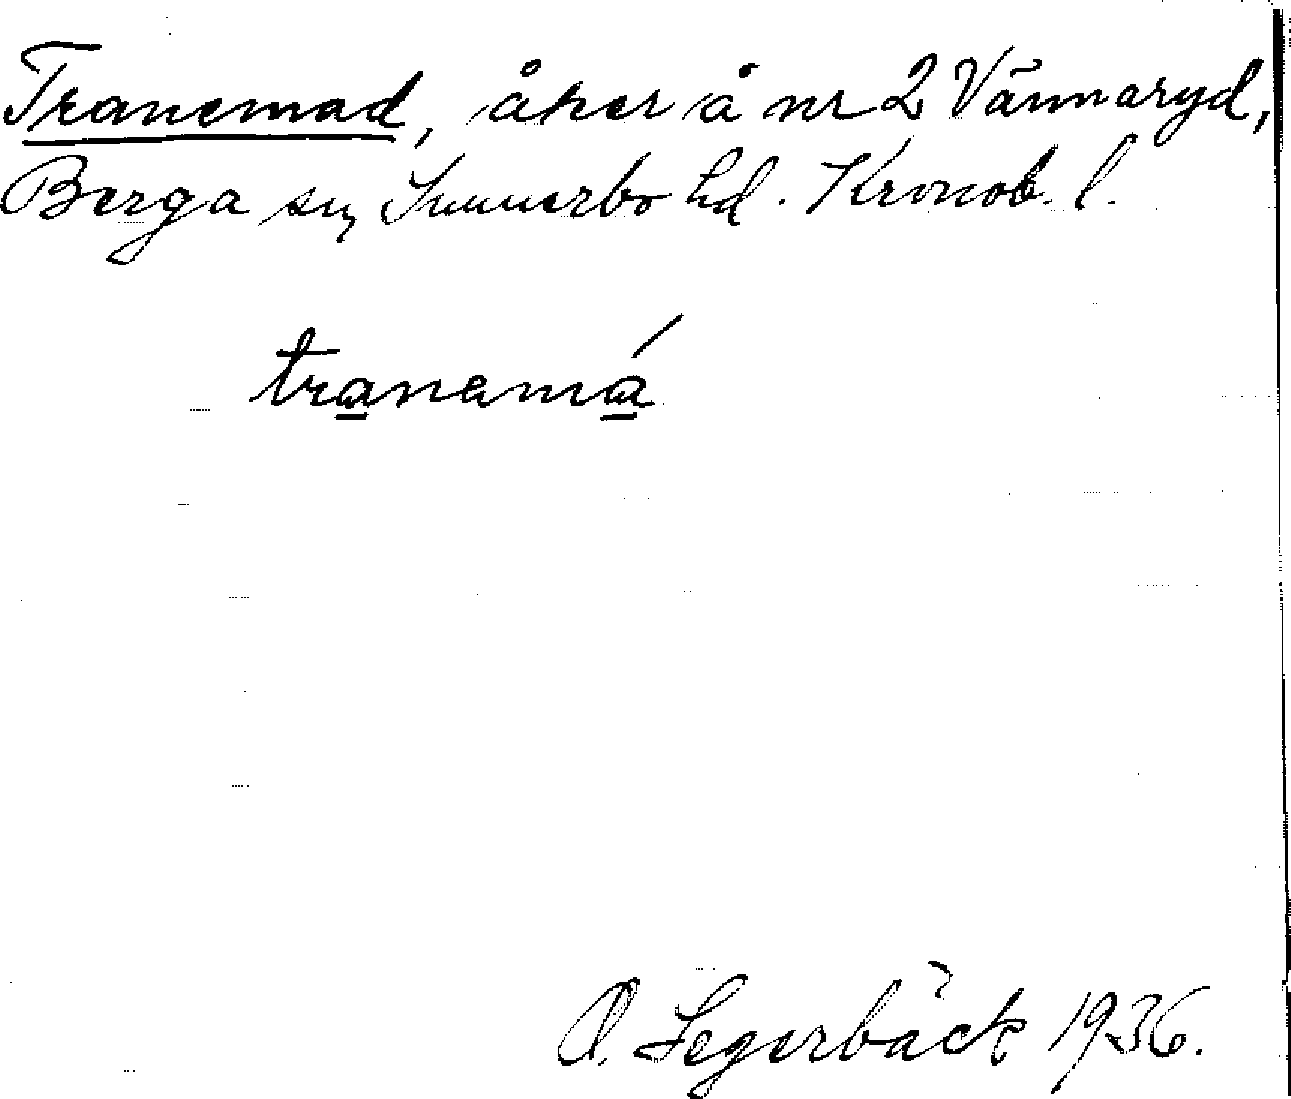 Tranemad, åker å nr 2 Vännaryd,
Berga sn, Sunnerbo hd. Kronob. l.
tranamá
O. Segerbäck 1936.